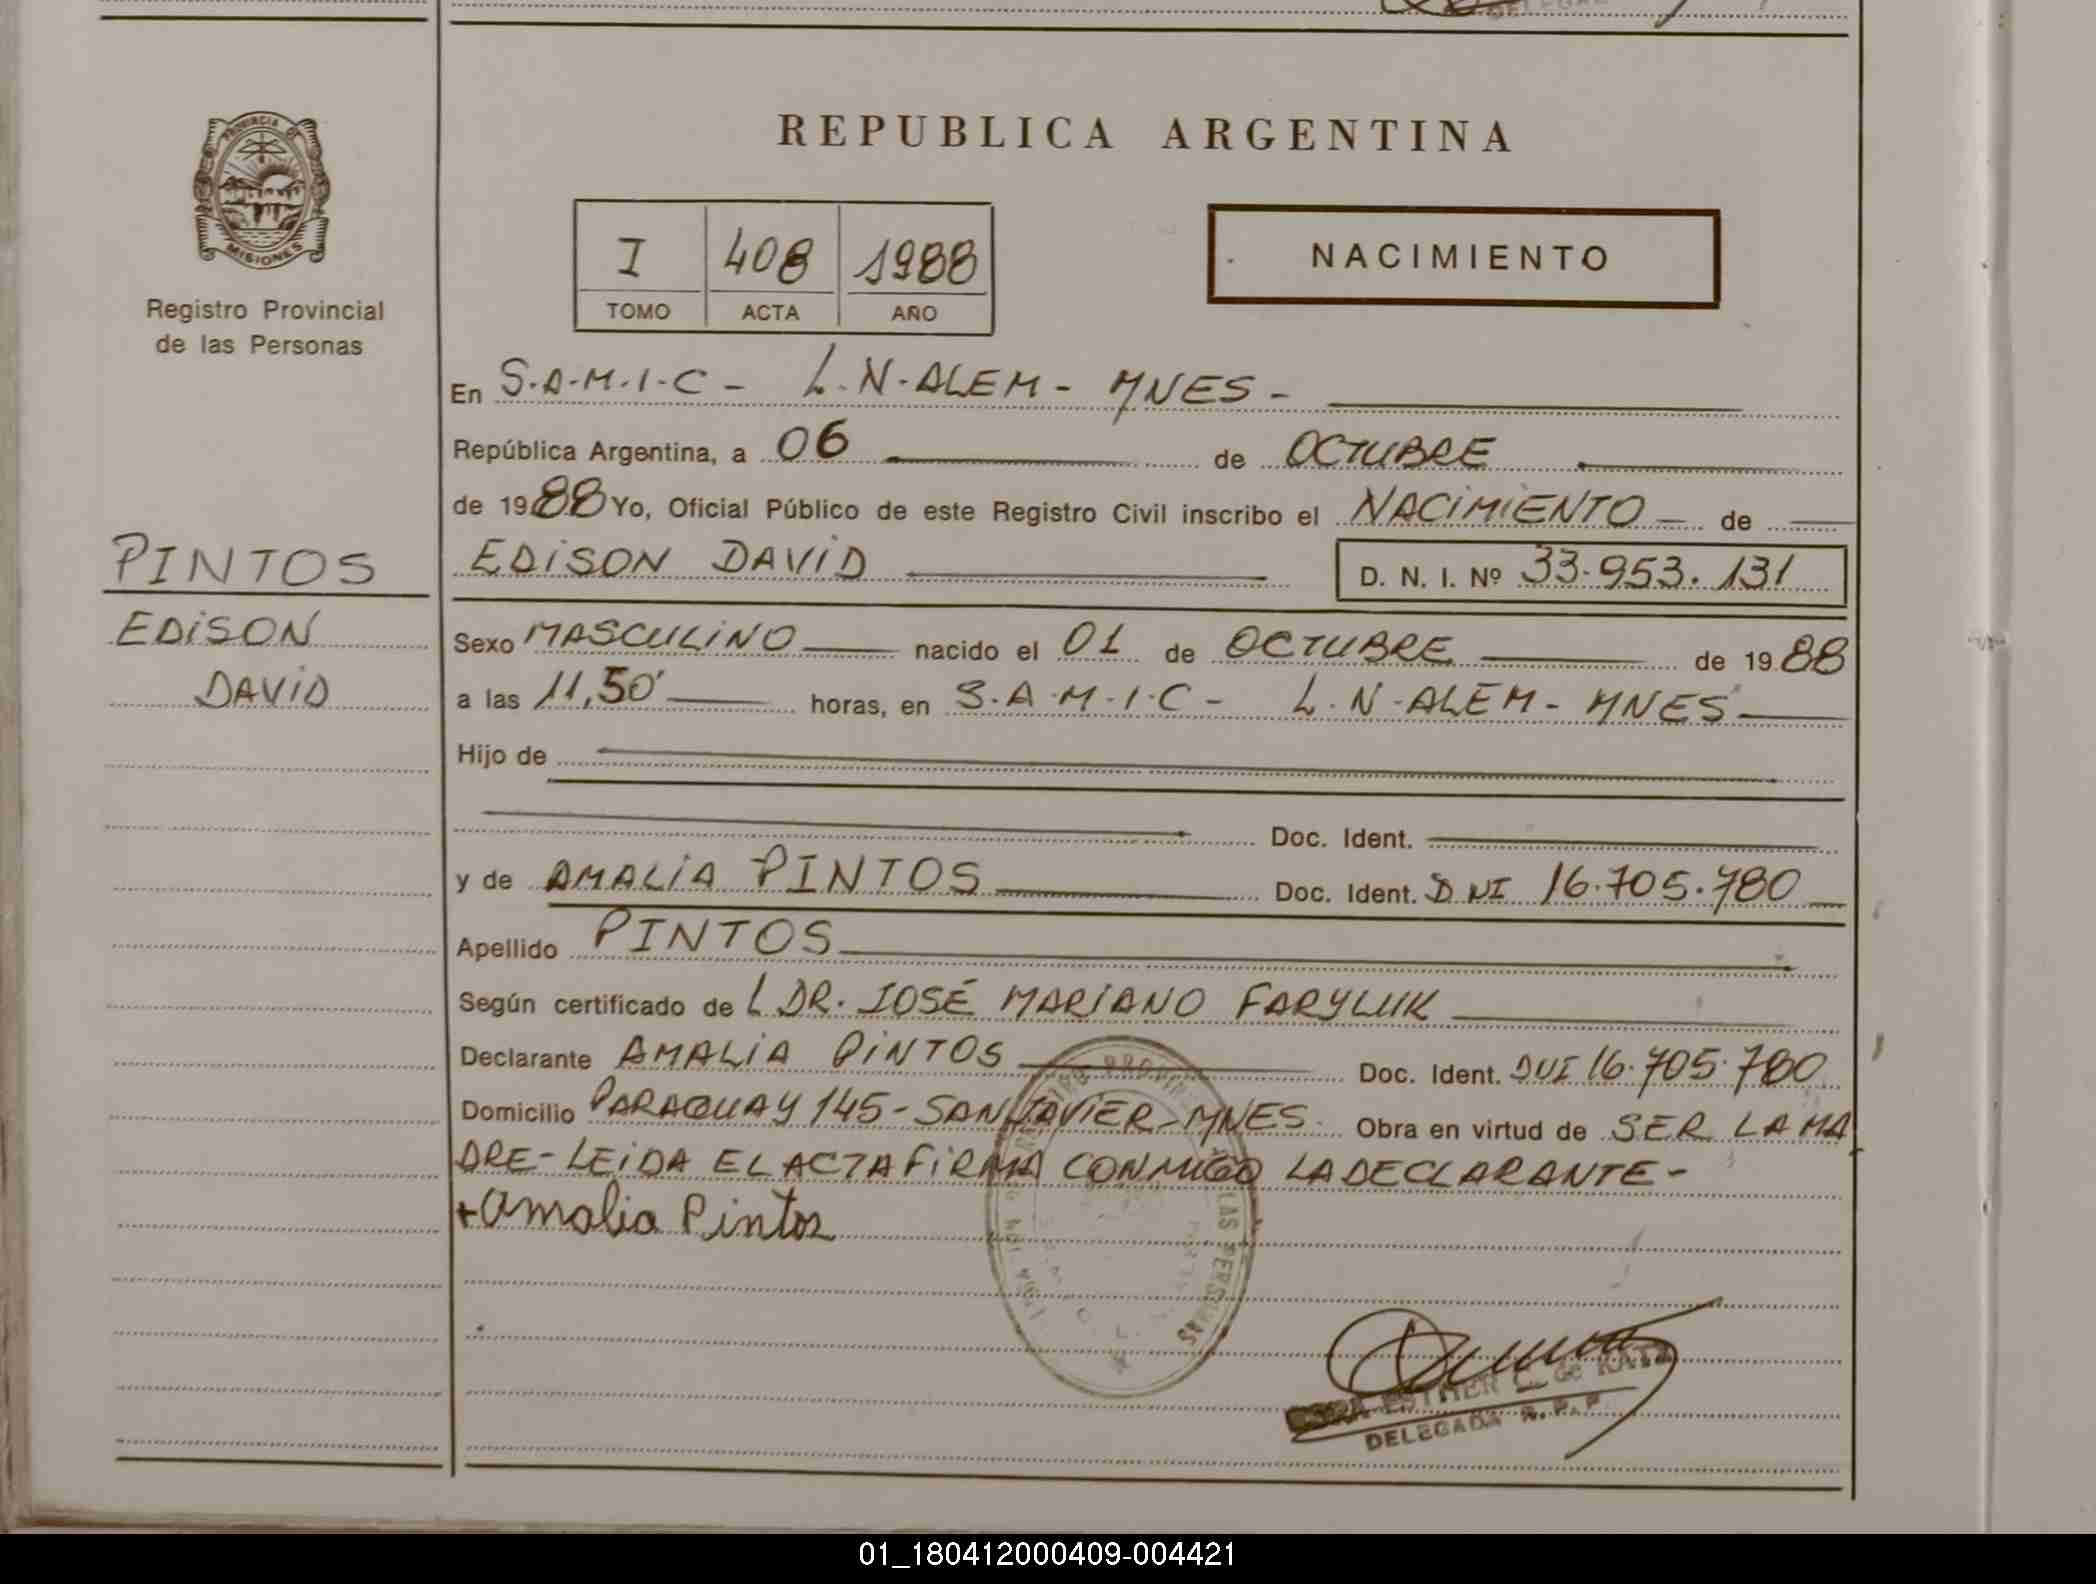 REPUBLICA ARGENTINA
PROVINCIA DE
MISIONES
Registro Provincial
de las Personas
I 408 1988
TOMO ACTA AÑO
NACIMIENTO
En S.A.M.I.C - L.N.ALEM - MNES -
República Argentina, a 06 de OCTUBRE
de 1988 Yo, Oficial Público de este Registro Civil inscribo el NACIMIENTO de
EDISON DAVID D. N. I. Nº 33.953.131
PINTOS
EDISON
DAVID
Sexo MASCULINO nacido el 01 de OCTUBRE de 1988
a las 11,50' horas, en S.A.M.I.C - L.N.ALEM - MNES
Hijo de
Doc. Ident.
y de AMALIA PINTOS Doc. Ident. DNI 16.705.780
Apellido PINTOS
Según certificado de L DR. JOSÉ MARIANO FARYLUK
Declarante AMALIA PINTOS Doc. Ident. DNI 16.705.780
Domicilio PARAGUAY 145 - SAN JAVIER - MNES. Obra en virtud de SER LA MA
DRE - LEIDA EL ACTA FIRMA CONMIGO LA DECLARANTE -
+ Amalia Pintos
ESTHER L. de KATZ
DELEGADA R.P.P.
01_180412000409-004421